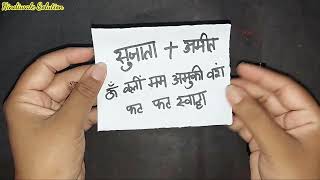 Hindiwale Solution
सुजाता + अमीत
ॐ क्लीं मम अमुकी वंश
फट फट स्वाहा